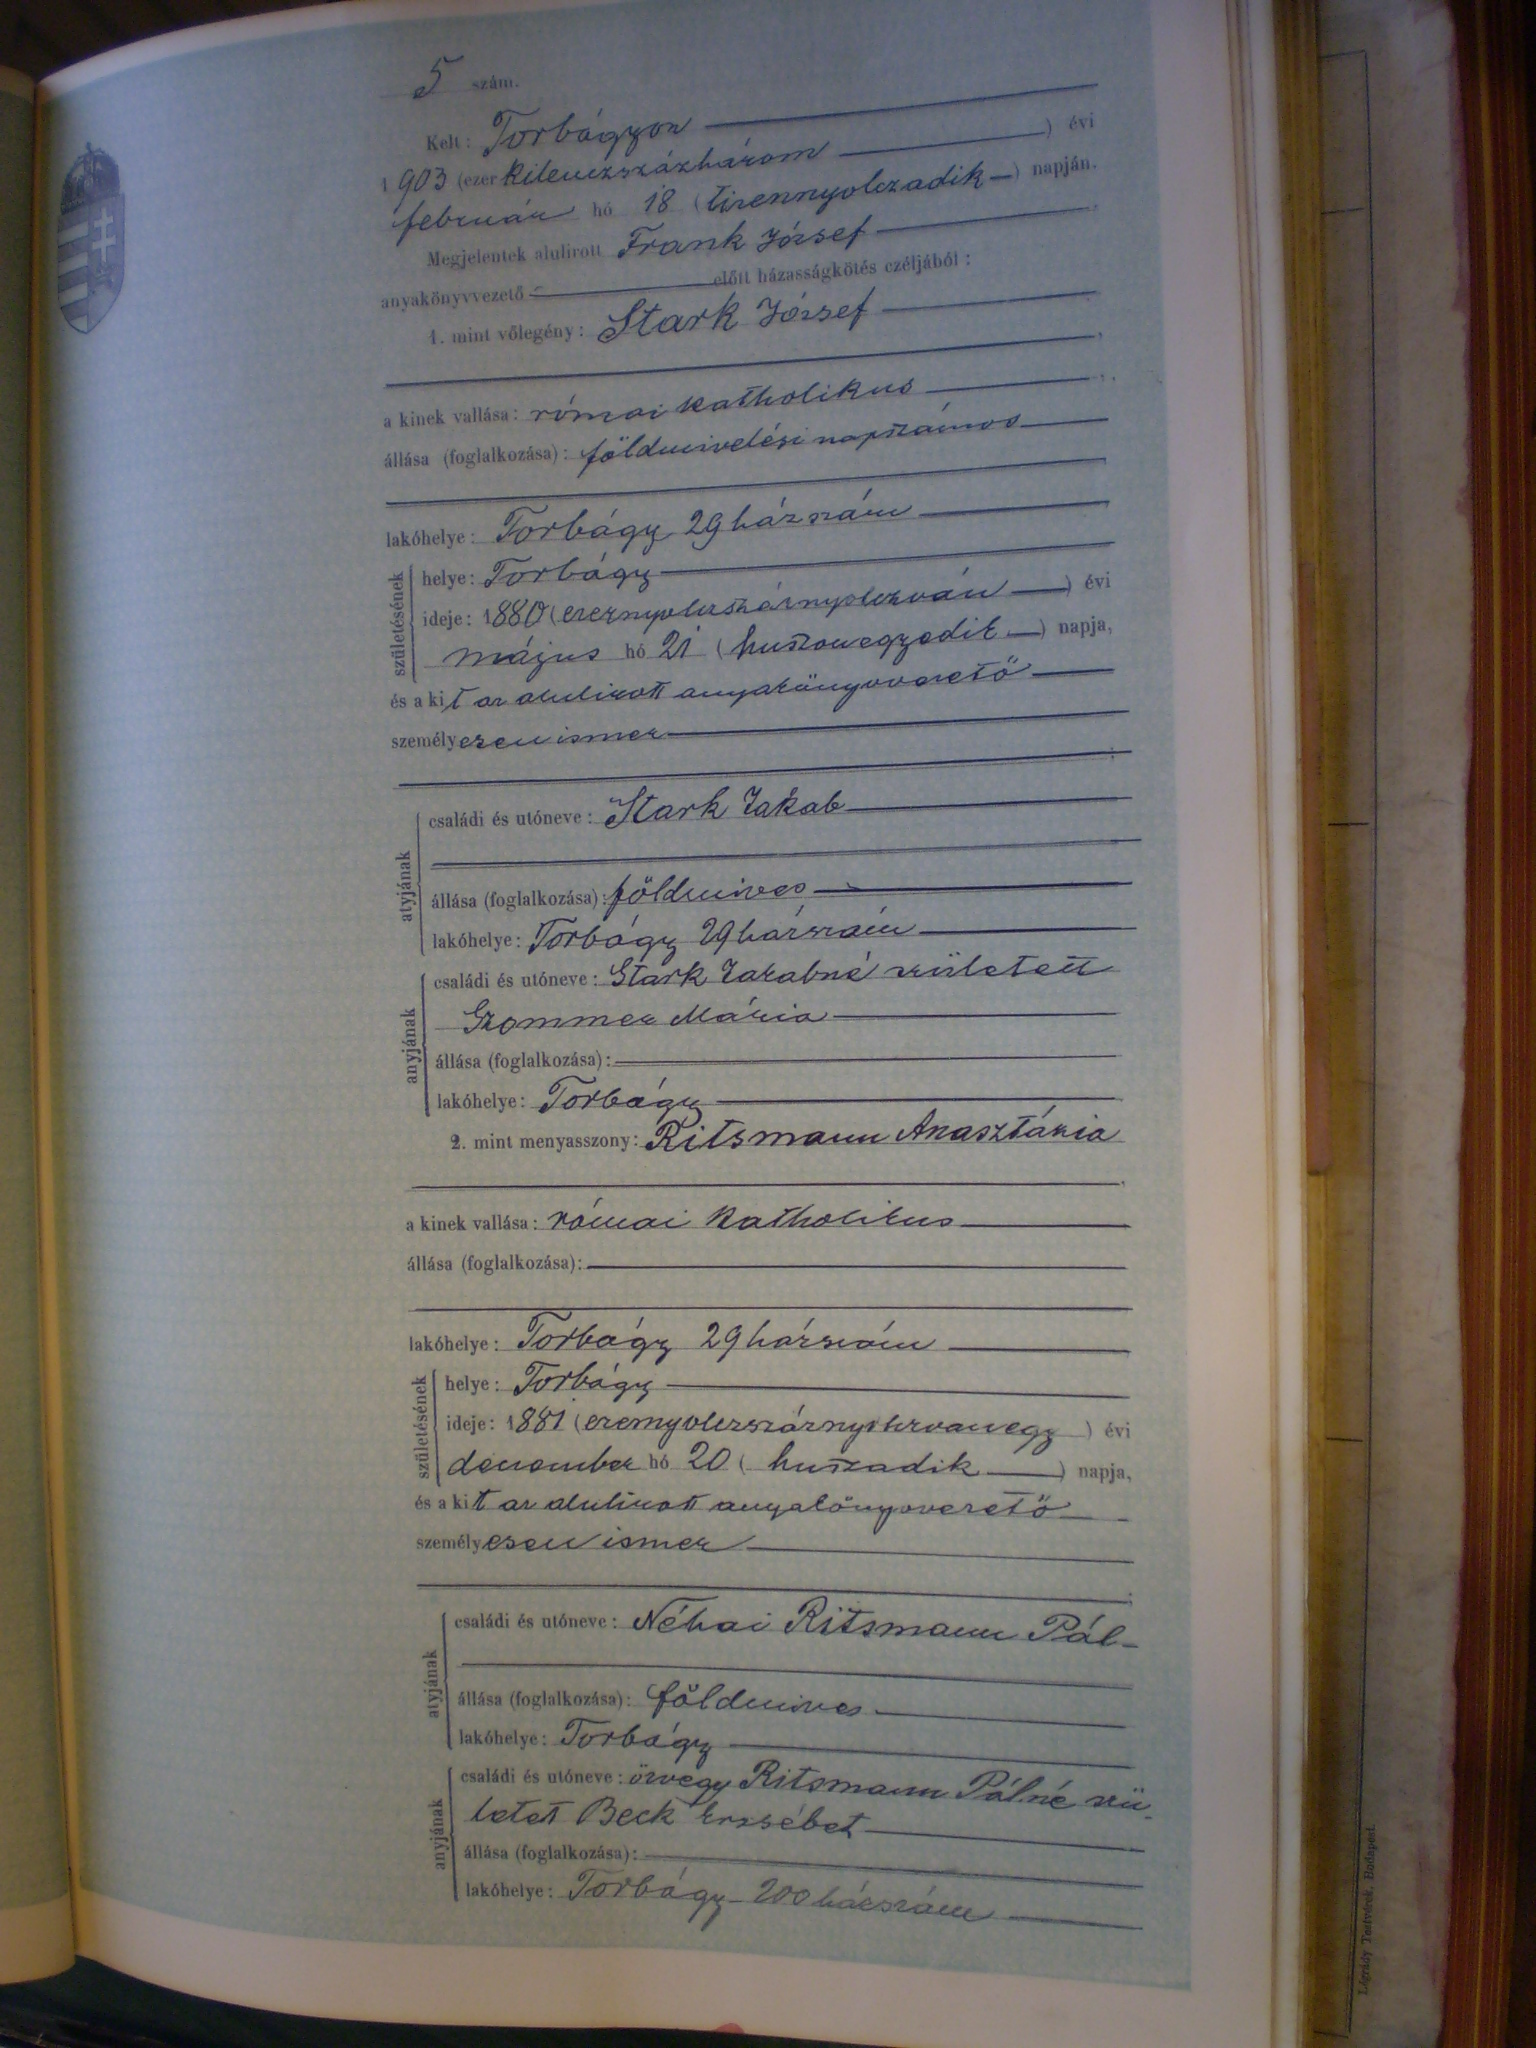 5 szám.
Kelt: Torbágyon
1903 (ezerkilenczszázhárom) évi
február hó 18 (tizennyolczadik) napján.
Megjelentek alulirott Frank József
anyakönyvvezető előtt házasságkötés czéljából:
1. mint vőlegény: Stark József
a kinek vallása: római katholikus
állása (foglalkozása): földmivelési napszámos
lakóhelye: Torbágy 29 házszám
születésének
helye: Torbágy
ideje: 1880 (ezernyolczszáznyolczván) évi
május hó 21 (huszonegyedik) napja,
és a kit az alulirott anyakönyvvezető
személyesen ismer
;
atyjának
családi és utóneve: Stark Jakab
állása (foglalkozása): földmives
lakóhelye: Torbágy 29 házszám
anyjának
családi és utóneve: Stark Jakabné született
Mária
állása (foglalkozása):
lakóhelye: Torbágy
2. mint menyasszony: Ritsmann Anasztázia
a kinek vallása: római katholikus
állása (foglalkozása):
lakóhelye: Torbágy 29 házszám
születésének
helye: Torbágy
ideje: 1881 (ezernyolczszáznyolczvanegy) évi
deczember hó 20 (huszadik) napja,
és a kit az alulirott anyakönyvvezető
személyesen ismer
;
atyjának
családi és utóneve: Néhai Ritsmann Pál
állása (foglalkozása): földmives
lakóhelye: Torbágy
anyjának
családi és utóneve: özvegy Ritsmann Pálné szü-
letett Beck Erzsébet
állása (foglalkozása):
lakóhelye: Torbágy 200 házszám
Légrády Testvérek, Budapest